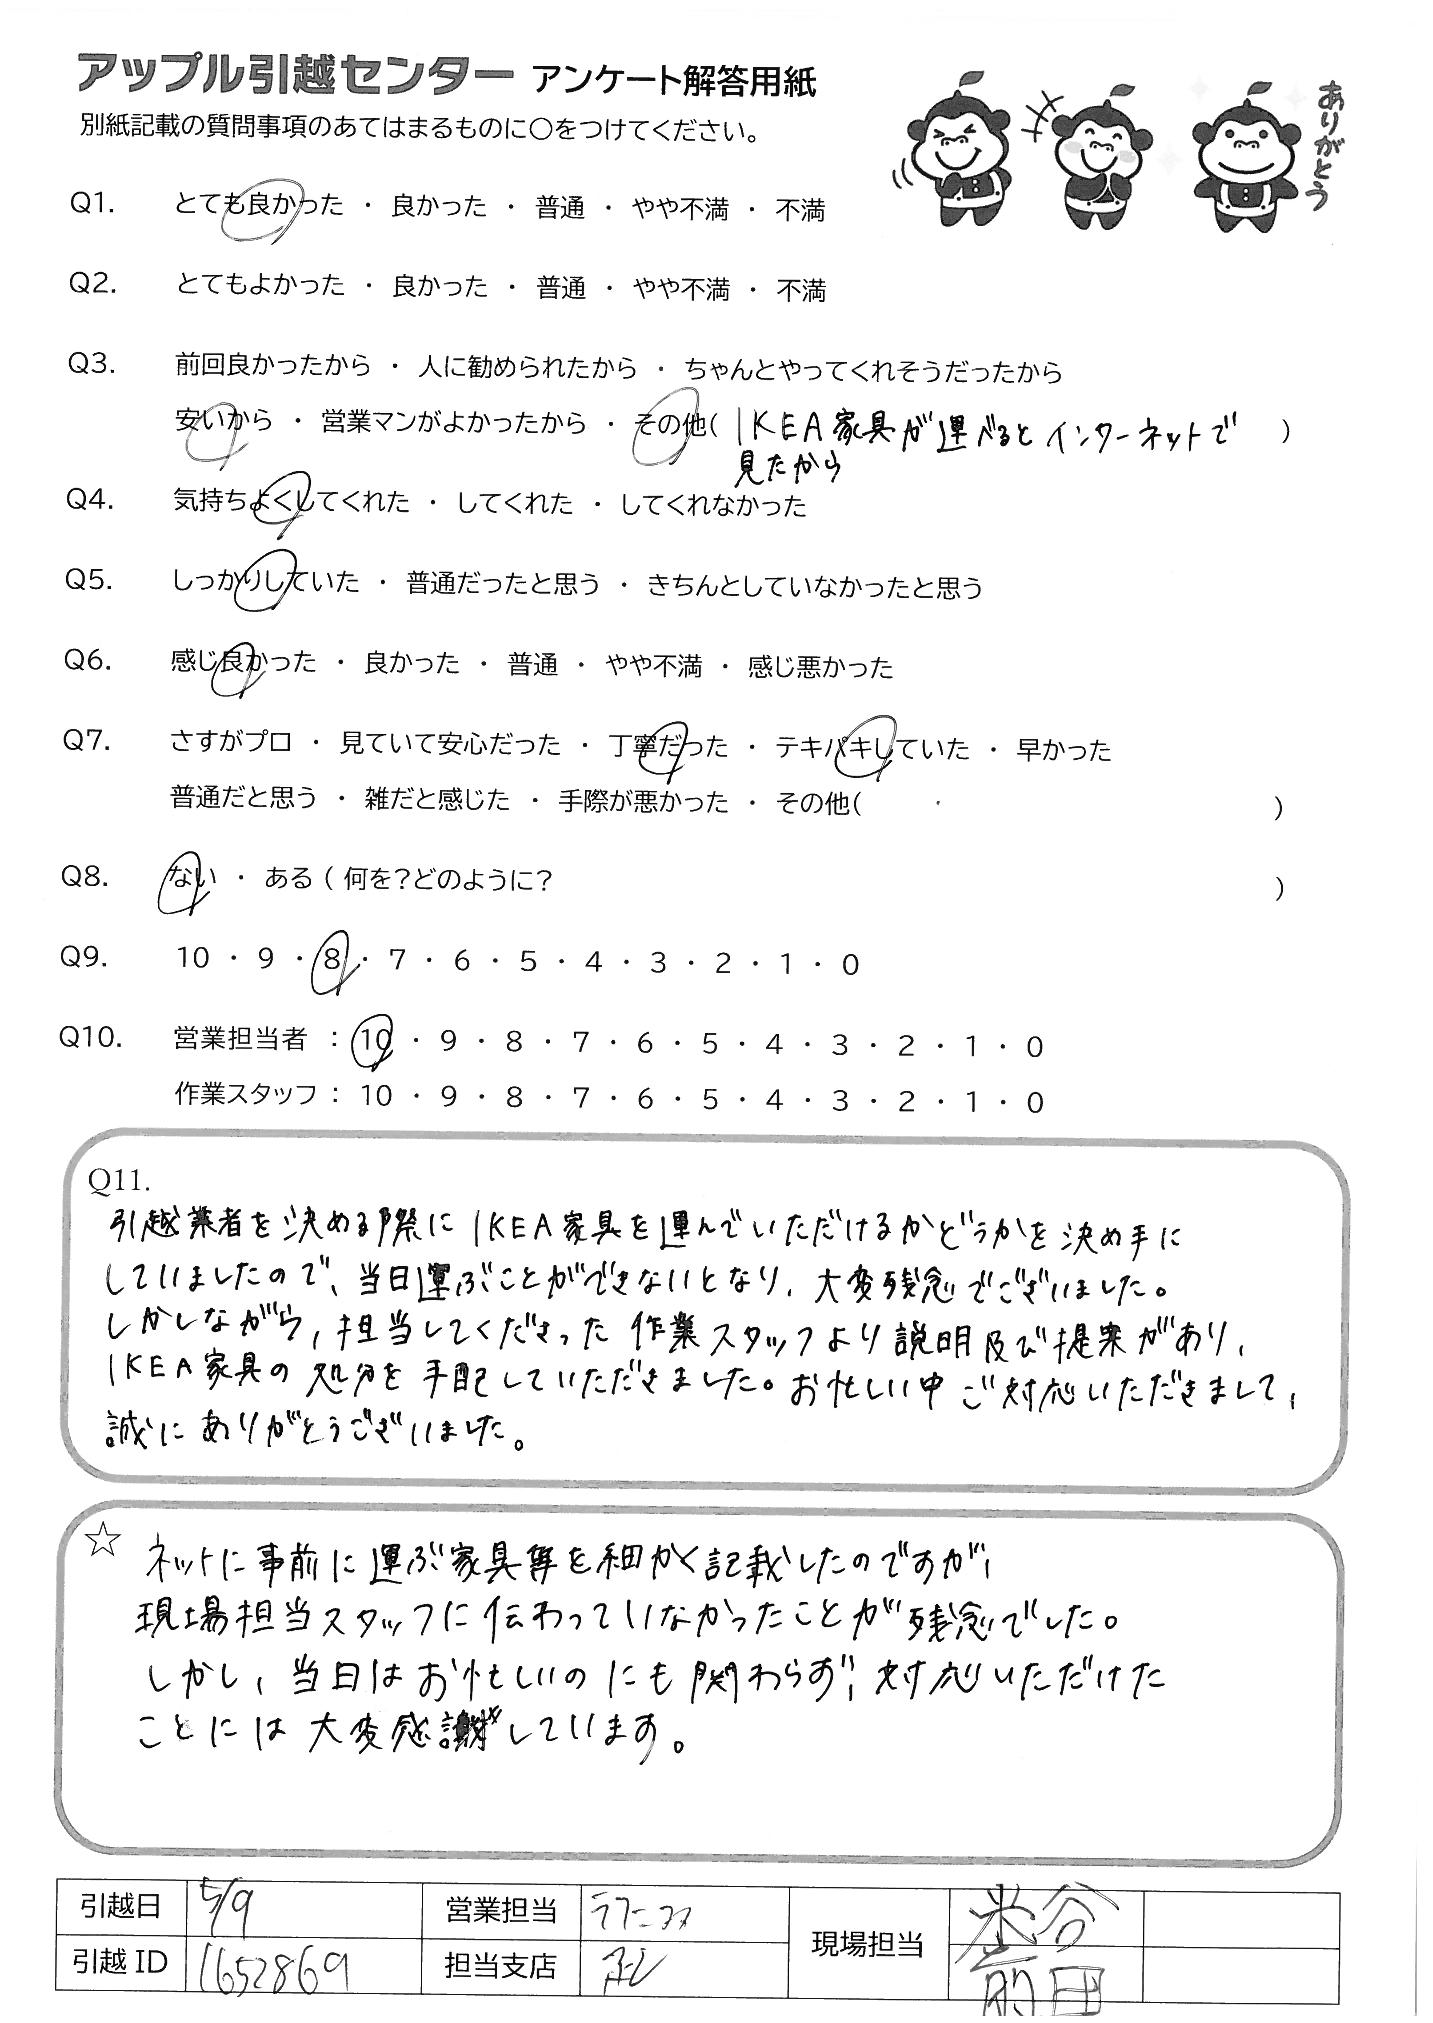 アップル引越センター アンケート解答用紙
別紙記載の質問事項のあてはまるものに○をつけてください。
ありがとう
Q1. とても良かった ・ 良かった ・ 普通 ・ やや不満 ・ 不満
Q2. とてもよかった ・ 良かった ・ 普通 ・ やや不満 ・ 不満
Q3. 前回良かったから ・ 人に勧められたから ・ ちゃんとやってくれそうだったから
安いから ・ 営業マンがよかったから ・ その他( IKEA家具が運べるとインターネットで )
見たから
Q4. 気持ちよくしてくれた ・ してくれた ・ してくれなかった
Q5. しっかりしていた ・ 普通だったと思う ・ きちんとしていなかったと思う
Q6. 感じ良かった ・ 良かった ・ 普通 ・ やや不満 ・ 感じ悪かった
Q7. さすがプロ ・ 見ていて安心だった ・ 丁寧だった ・ テキパキしていた ・ 早かった
普通だと思う ・ 雑だと感じた ・ 手際が悪かった ・ その他( )
Q8. ない ・ ある ( 何を?どのように? )
Q9. 10 ・ 9 ・ 8 ・ 7 ・ 6 ・ 5 ・ 4 ・ 3 ・ 2 ・ 1 ・ 0
Q10. 営業担当者 : 10 ・ 9 ・ 8 ・ 7 ・ 6 ・ 5 ・ 4 ・ 3 ・ 2 ・ 1 ・ 0
作業スタッフ : 10 ・ 9 ・ 8 ・ 7 ・ 6 ・ 5 ・ 4 ・ 3 ・ 2 ・ 1 ・ 0
Q11.
引越業者を決める際にIKEA家具を運んでいただけるかどうかを決め手に
していましたので、当日運ぶことができないとなり、大変残念でございました。
しかしながら、担当してくださった作業スタッフより説明及び提案があり、
IKEA家具の処分を手配していただきました。お忙しい中ご対応いただきまして、
誠にありがとうございました。
☆ ネットに事前に運ぶ家具等を細かく記載したのですが、
現場担当スタッフに伝わっていなかったことが残念でした。
しかし、当日はお忙しいのにも関わらず、対応いただけた
ことには大変感謝しています。
引越日 5/9 営業担当 現場担当 渋谷
引越ID 1652869 担当支店 前田